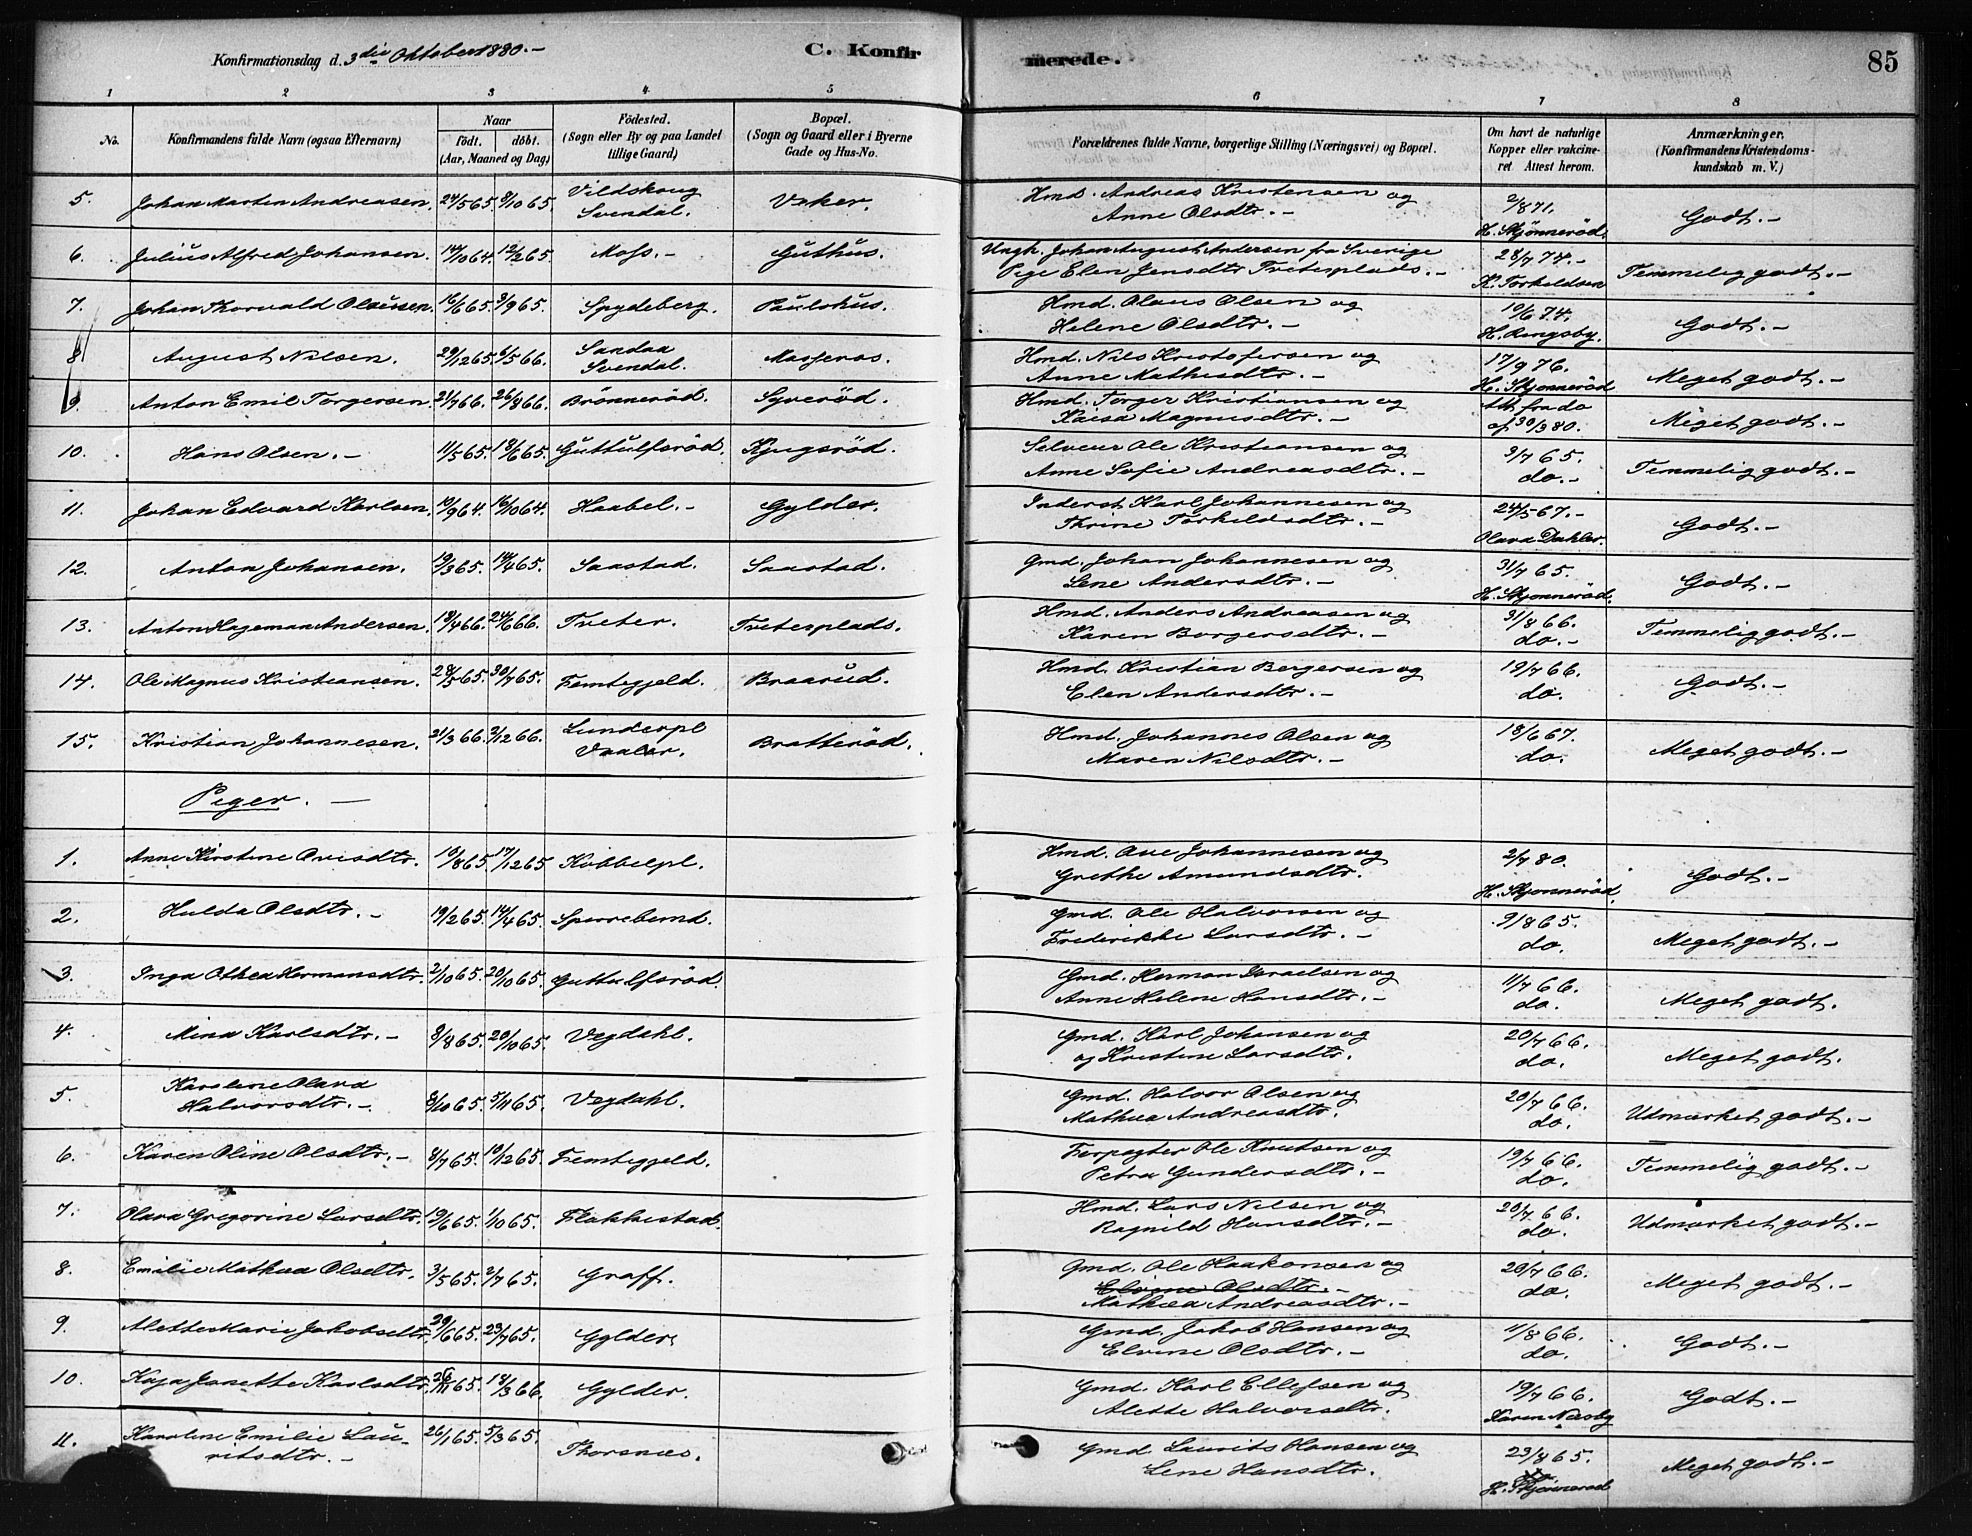 Konfirmationsdag d. 3die Oktober 1880.-
C. Konfirmerede.
85
1 2 3 4 5 6 7 8
No. Konfirmandens fulde Navn (ogsaa Efternavn) Naar født. døbt. (Aar, Maaned og Dag) Fødested. (Sogn eller By og paa Landet tillige Gaard) Bopæl. (Sogn og Gaard eller i Byerne Gade og Hus-No. Forældrenes fulde Navne, borgerlige Stilling (Næringsvei) og Bopæl. Om havt de naturlige Kopper eller vakcineret Attest herom. Anmærkninger, (Konfirmandens Kristendomskundskab m. V.)
5. Johan Martin Andreasen. 24/5 65. 8/10 65. Vildskoug Svendal. Veker. Hmd. Andreas Kristensen og Anne Olsdtr. - 2/8 71. H. Skjønnerød. Godt. -
6. Julius Alfred Johansen. 14/10 64. 12/2 65. Moss. - Guthus. Ungk. Johan August Andersen fra Sverige Pige Elen Jensdtr Tveterplads. - 28/7 74. - K. Torkeldsen Temmelig godt. -
7. Johan Thorvald Olausen. 16/6 65. 3/9 65. Spydeberg. Paulshus. Hmd. Olaus Olsen og Helene Olsdtr. - 10/6 74. H. Ringsby. Godt. -
8 August Nilsen. 29/12 65. 6/5 66. Sandaa Svendal. Masseros. Hmd. Nils Kristofersen og Anne Mathisdtr. - 17/9 76. H. Skjønnerød Meget godt. -
9 Anton Emil Torgersen 21/7 66. 26/8 66. Brönneröd. Syveröd. Hmd. Torger Kristiansen og Kaisa Magnusdtr. - Att. fra do af 30/3 80. Meget godt. -
10. Hans Olsen. - 11/5 65. 18/6 65. Guttulfsröd. Kjugsröd. Selveier Ole Kristiansen og Anne Sofie Andreasdtr. - 3/7 65. do. - Temmelig godt. -
11. Johan Edvard Karlsen. 10/9 64. 16/10 64. Haabel. - Gylder. Inderst Karl Johannesen og Thrine Torkeldsdtr. - 24/5 67. - Olava Dahler. Godt. -
12. Anton Johansen. 19/3 65. 14/4 65. Saastad. Saastad. Gmd. Johan Johannesen og Lene Andersdtr. - 31/7 65. H. Skjønnerød. Godt. -
13. Anton Hageman Andersen. 18/4 66. 24/6 66. Tveter. Tveterplads. Hmd. Anders Andreasen og Karen Borgersdtr. - 31/8 66. do. - Temmelig godt. -
14. Ole Magnus Kristiansen. 28/5 65. 30/7 65. Femtegjeld. Braarud. Hmd. Kristian Bergersen og Elen Andersdtr. - 19/7 66. do. Godt. -
15. Kristian Johannesen. 21/3 66. 2/12 66. Lunderpl Vaaler. Bratteröd. Hmd. Johannes Olsen og Maren Nilsdtr. - 18/6 67. do. Meget godt. -
Piger. -
1. Anne Kirstine Ovesdtr. 10/8 65. 17/12 65 Kobbelpl. Hmd. Ove Johannesen og Grethe Amundsdtr. 2/7 80. H. Skjønnerød Godt. -
2. Hulda Olsdtr. - 19/2 65. 14/4 65. Sperrebomd. Gmd. Ole Halvorsen og Frederikke Larsdtr. - 9/8 65. do. Meget godt. -
3. Inga Othea Hermansdtr. 2/10 65. 20/10 65. Guttulfsröd. Gmd. Herman Israelsen og Anne Helene Hansdtr. - 11/7 66. do. Meget godt.
4. Mina Karlsdtr. - 8/8 65. 20/10 65. Vegdahl. Gmd. Karl Johansen og og Kristine Larsdtr. 20/7 66. do. Meget godt.
5. Karoline Olava Halvorsdtr. - 8/10 65. 5/11 65. Vegdahl. Gmd. Halvor Olsen og Mathea Andreasdtr. 20/7 66. do. Udmærket godt. -
6. Karen Oline Olsdtr. - 8/7 65. 10/12 65. Femtegjeld. Forpagter Ole Knutsen og Petra Gundersdtr. - 19/7 66. do. Temmelig godt. -
7. Olava Gregorine Larsdtr. 19/6 65. 1/10 65. Flakkestad. Hmd. Lars Nilsen og Ragnild Hansdtr. - 20/7 66. do. Udmærket godt. -
8. Emilie Mathea Olsdtr. 3/5 65. 2/7 65. Graff. Gmd. Ole Haakonsen og Elvine Olsdtr. - Mathea Andreasdtr. - 20/7 66. do. Meget godt. -
9. Alette Marie Jakobsdtr. 29/6 65. 23/7 65. Gylder. Gmd. Jakob Hansen og Elvine Olsdtr. - 11/8 66. do. Godt. -
10. Kaja Janette Karlsdtr. 26/11 65. 18/3 66. Gylder. Gmd. Karl Ellefsen og Alette Halvorsdtr. 19/7 66. Karen Næsby Godt. -
11. Karoline Emilie Lauritsdtr. - 26/1 65. 5/3 65. Thorsnæs. Gmd. Laurits Hansen og Lene Hansdtr. 23/8 65. H. Skjønnerød Meget godt. -